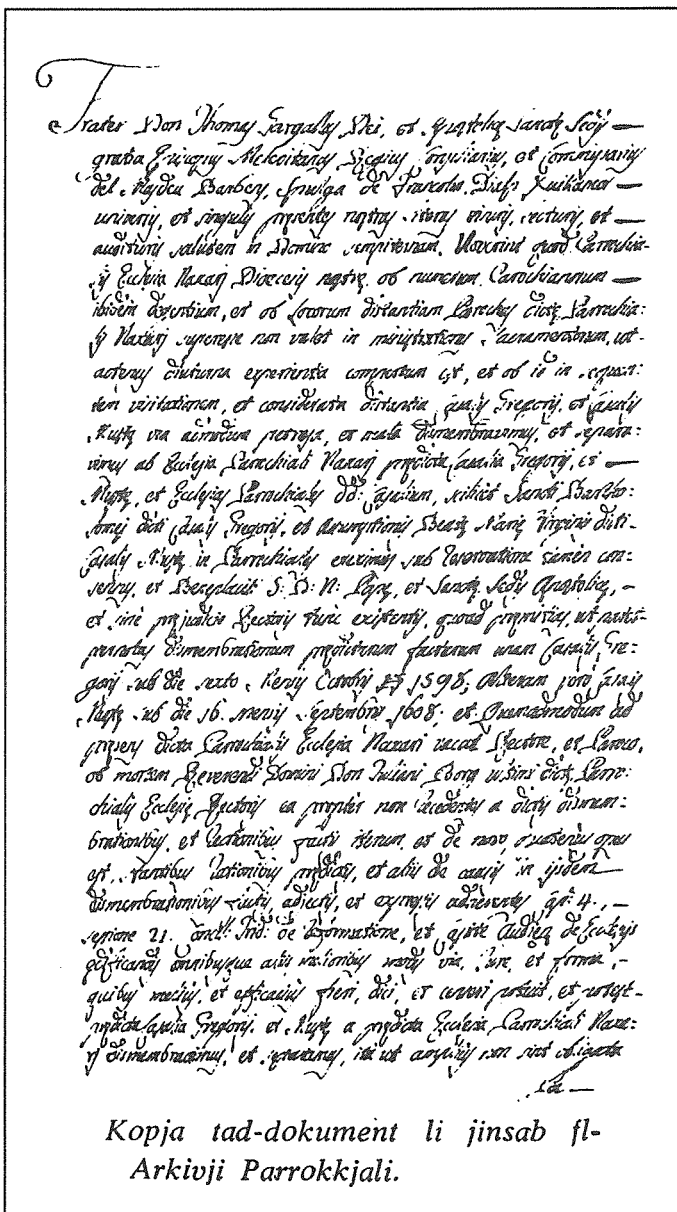 Frater Don Thomas Gargallus Dei, et Apostolicæ Sanctæ Sedis
gratia Episcopus Melevitanus Regius Consiliarius, et Commissarius
del
universis, et singulis præsentes nostras visuris, lecturis, et
audituris salutem in Domino sempiternam. Noverint quod Parrochia-
lis Ecclesia Naxari Diocesis nostræ ob numerum Parochianorum
ibidem degentium, et ob locorum distantiam Parochus dictæ Parrochia:
lis Naxari superesse non valet in ministratione Sacramentorum, ut
actenus diuturna experientia compertum est, et ob id in
visitationem, et considerata distantia Casalis Gregorii, et Casalis
Mustæ via admodum petrosa, et mala dismembravimus, et separa:
vimus ab Ecclesia Parrochiali Naxari prædicta Casalia Gregorii, et
Mustæ, et Ecclesias Parrochiales dd: Casalium, scilicet Sancti Bartho:
lomei dicti Casalis Gregorii, et Assumptionis Beatæ Mariæ Virginis dicti
Casalis Mustæ in Parrochiales ereximus sub reservatione tamen con-
sensus, et Beneplaciti S: D: N: Papæ, et Sanctæ Sedis Apostolicæ,
et sine præjudicio Rectoris tunc existentis, quoad præmissa, ut
dismembrationum prædictarum factarum unam Casalis Gre-
gorii sub die sexto Mensis Octobris 1598; Alteram vero Casalis
Mustæ sub die 16. mensis Septembris 1608; et Quemadmodum ad
præsens dicta Parrochialis Ecclesia Naxari vacat Rectore, et Paroco,
ob mortem Reverendi Domini Don Juliani Borg ultimi dictæ Parro:
chialis Ecclesiæ Rectoris ea propter non recedentes a dictis dismem:
brationibus, et factis iterum, et de novo quatenus opus
est, stantibus rationibus prædictis, et aliis de causis in eisdem
dismembrationibus factis, adjectis, et expressis
sessione 21. de reformatione, et
omnibusque aliis melioribus modo via, jure, et forma,
quibus melius, et efficacius fieri, dici, et censeri potuit, et potest
prædicta Casalia Gregorii, et Mustæ a prædicta Ecclesia Parrochiali Naxa:
ri dismembravimus, et separavimus, ita ut amplius non sint obligata
Kopja tad-dokument li jinsab fl-
Arkivji Parrokkjali.